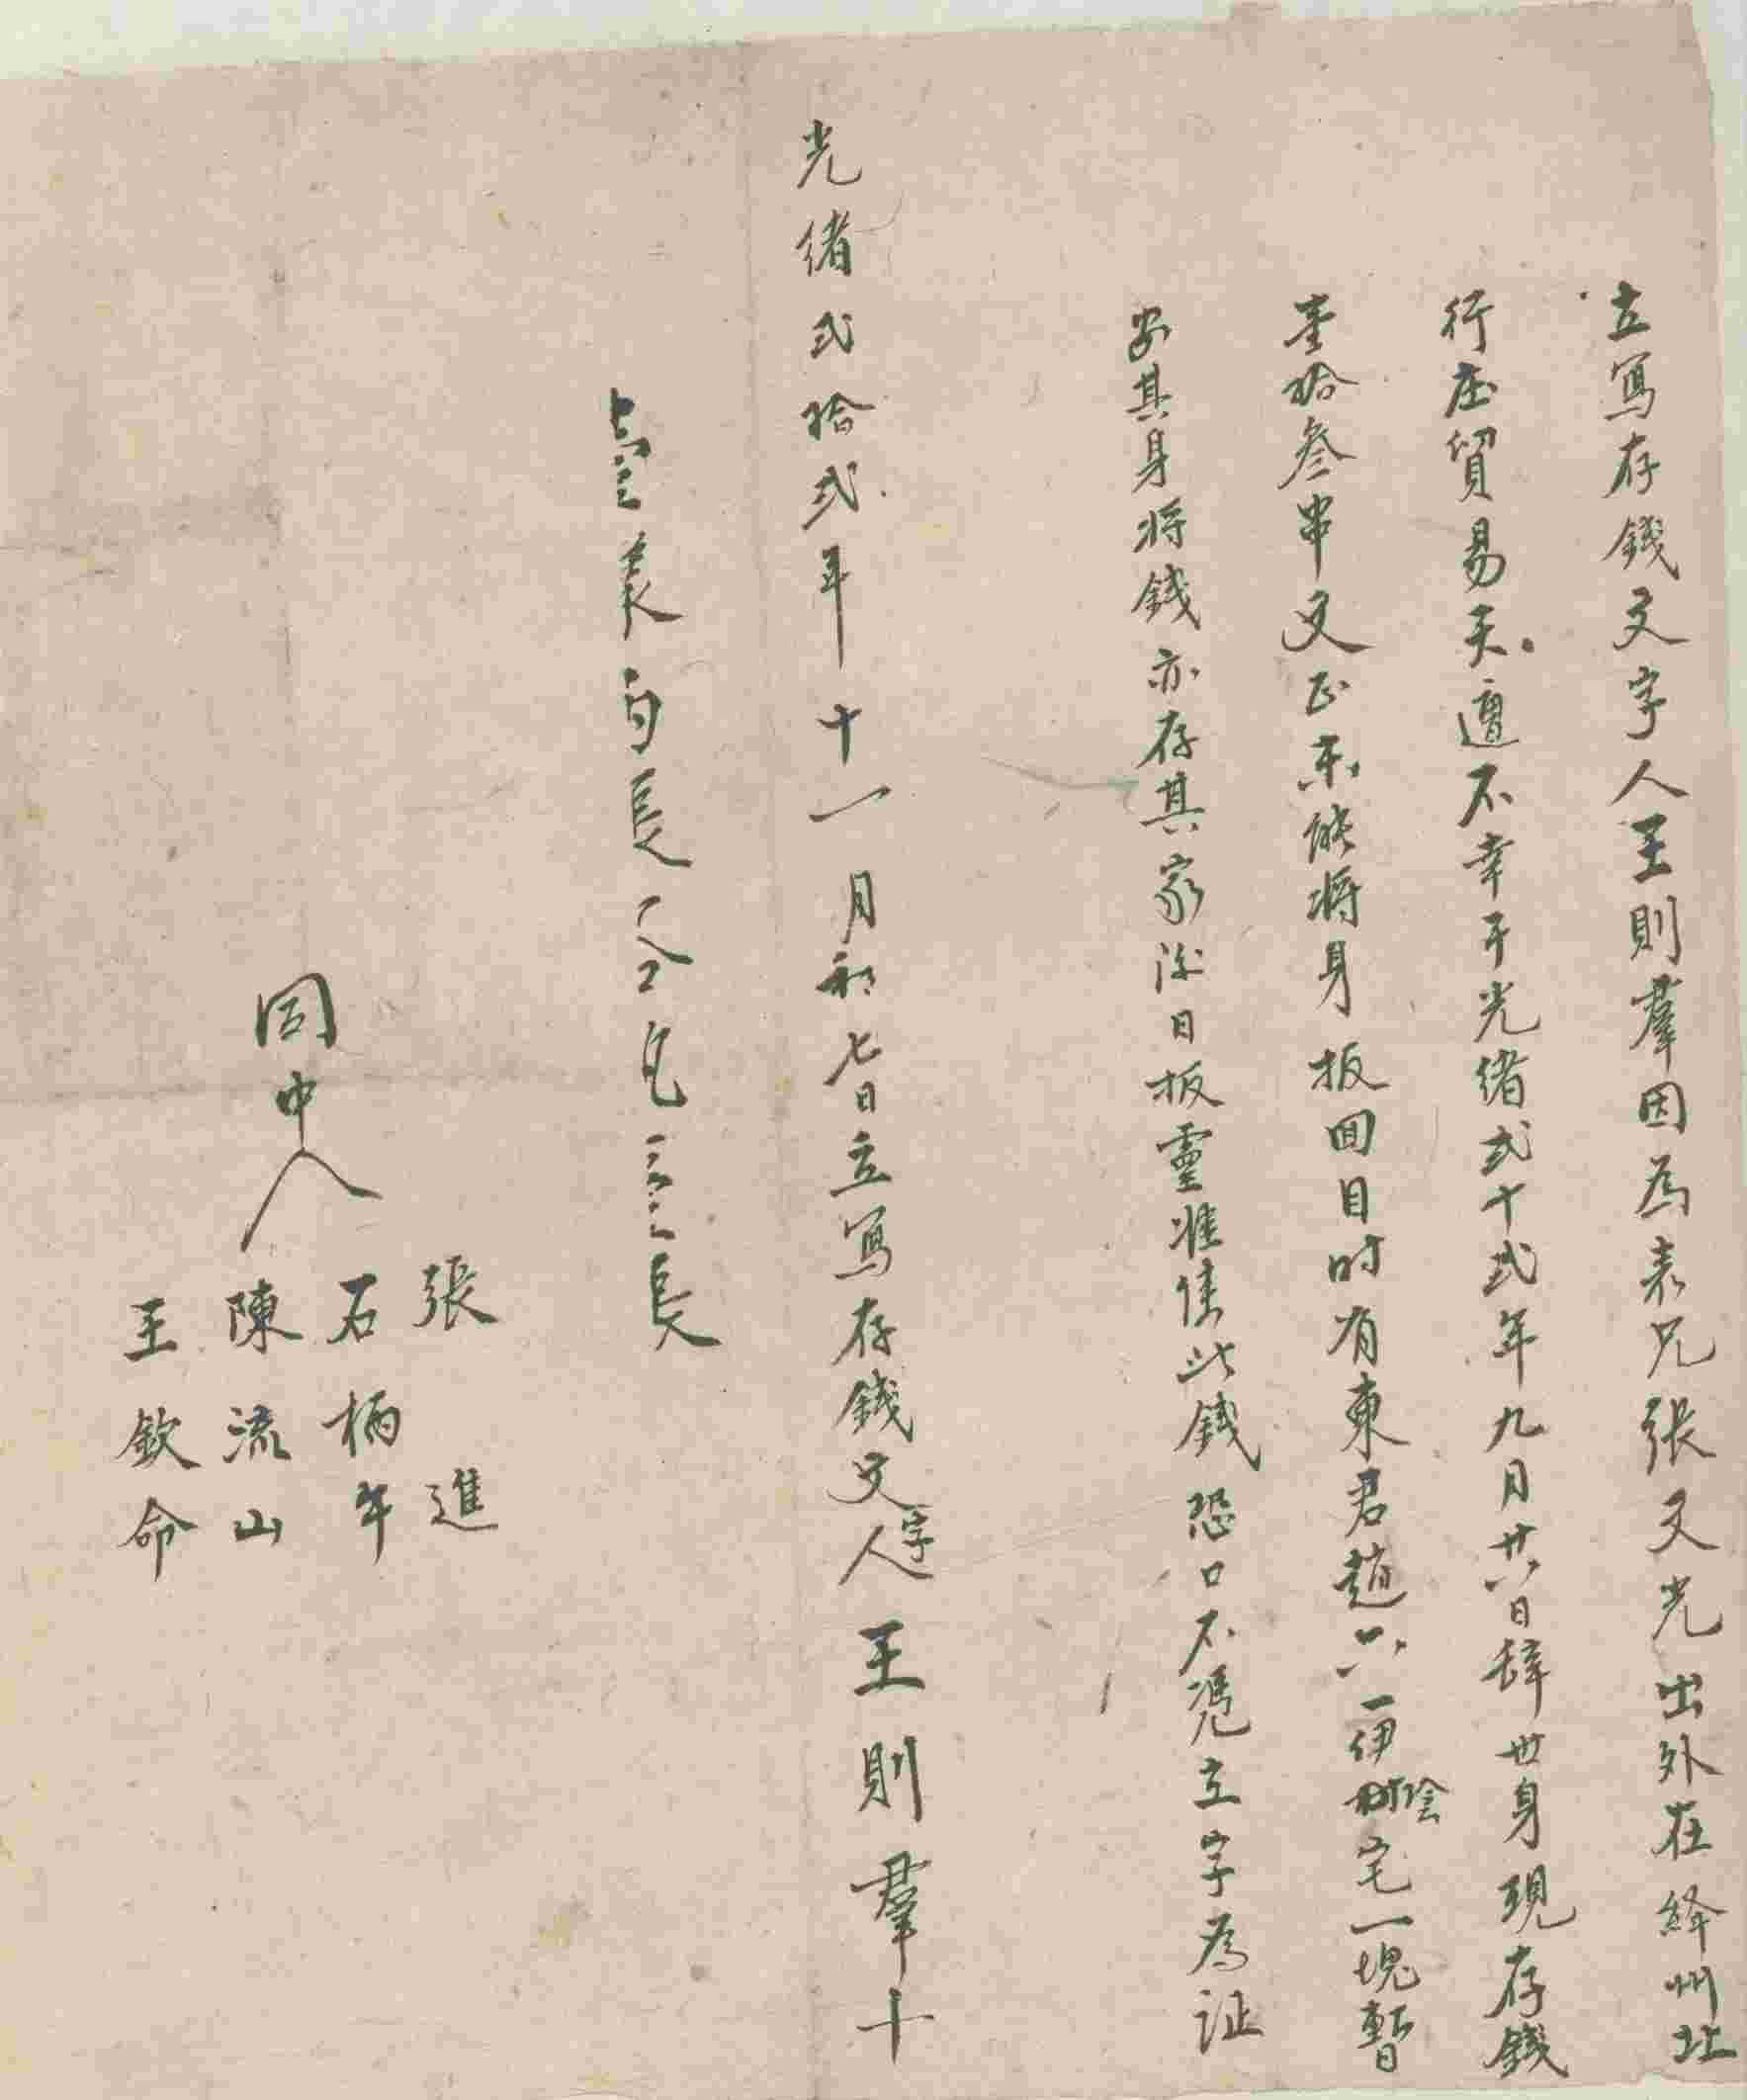 立寫存錢文字人王則羣因為表兄張文光出外在絳州北
行庄貿易天遭不幸于光緒弍十弍年九月廿六日辞世身現存錢
壹拾叁串文正未能將身扳回目时有東君趙六一伊陰宅一塊暫
安其身將錢亦存其家後日扳靈准使此錢恐口不憑立字為証
光緒弍拾弍年十一月初七日立寫存錢文字人王則羣十
同中人
張進
石柄年
陳流山
王欽命